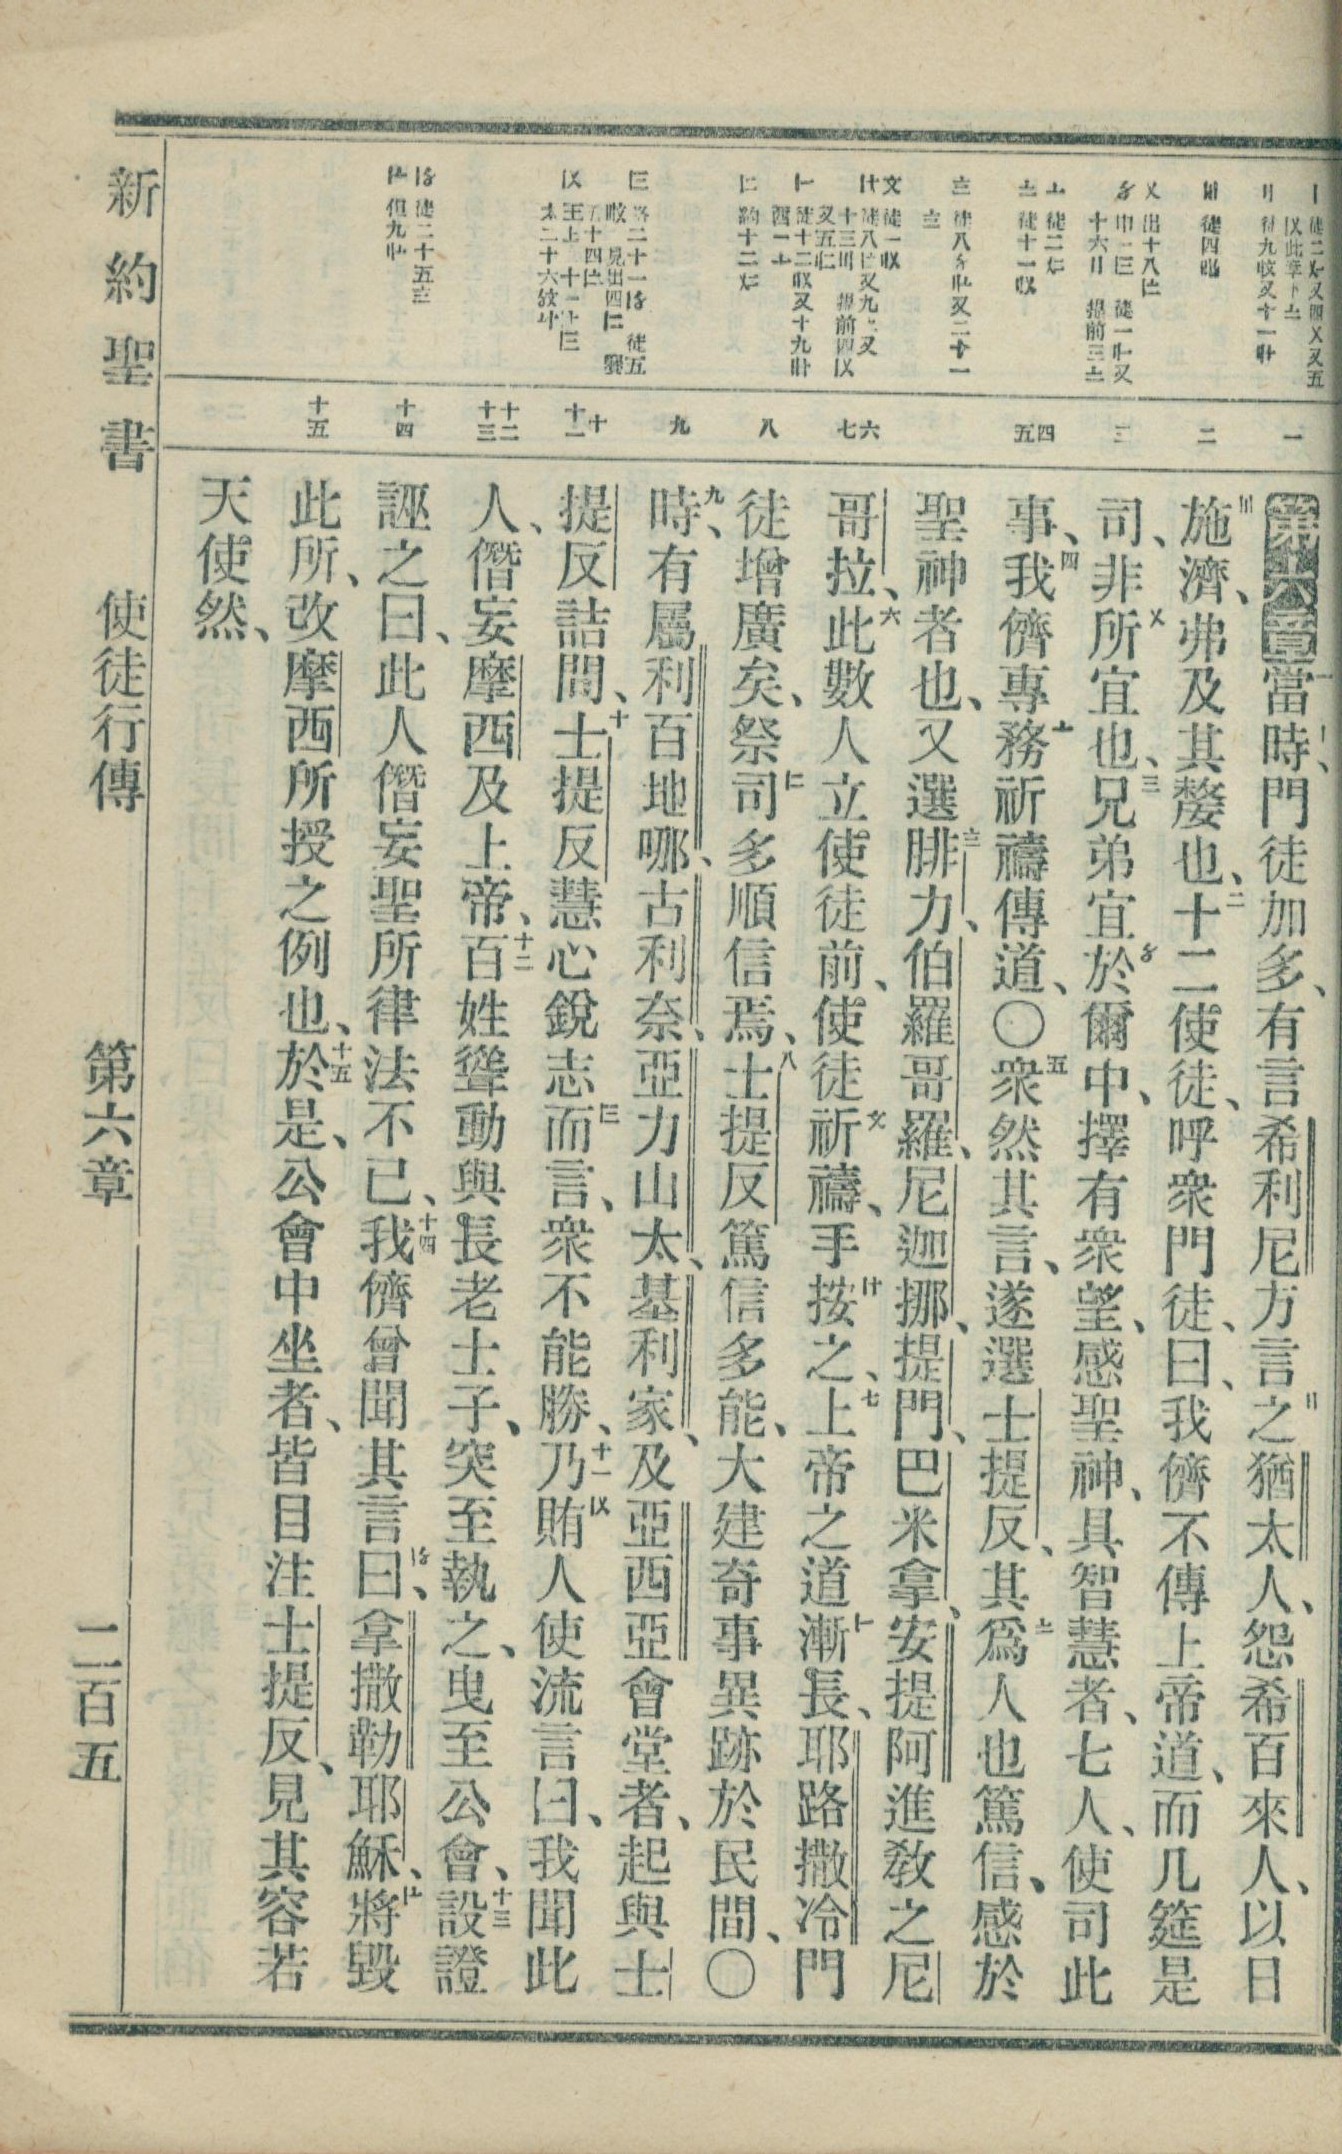 第六章當時、門徒加多、有言希利尼方言之猶太人、怨希百來人、以日
施濟、弗及其嫠也、十二使徒、呼衆門徒、曰、我儕不傳上帝道、而几筵是
司、非所宜也、兄弟宜於爾中、擇有衆望、感聖神、具智慧者、七人、使司此
事、我儕專務祈禱傳道、〇衆然其言、遂選士提反、其爲人也篤信、感於
聖神者也、又選腓力、伯羅哥羅、尼迦挪、提門、巴米拿、安提阿進敎之尼
哥拉、此數人立使徒前、使徒祈禱、手按之、上帝之道漸長、耶路撒冷門
徒增廣矣、祭司多順信焉、士提反篤信多能、大建奇事異跡於民間、〇
時、有屬利百地哪、古利奈、亞力山太、基利家、及亞西亞會堂者、起與士
提反詰問、士提反慧心銳志而言、衆不能勝、乃賄人使流言曰、我聞此
人、僭妄摩西及上帝、百姓聳動與長老士子、突至執之、曳至公會、設證
誣之曰、此人僭妄聖所律法不已、我儕曾聞其言曰、拿撒勒耶穌、將毀
此所、改摩西所授之例也、於是、公會中坐者、皆目注士提反、見其容若
天使然、
一
二
三
四
五
六
七
八
九
十
十一
十二
十三
十四
十五
新約聖書 使徒行傳 第六章 二百五